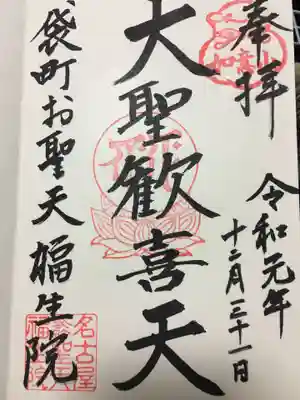 奉拝
令和元年
十二月三十一日
大聖歓喜天
袋町お聖天 福生院
如意山
名古屋